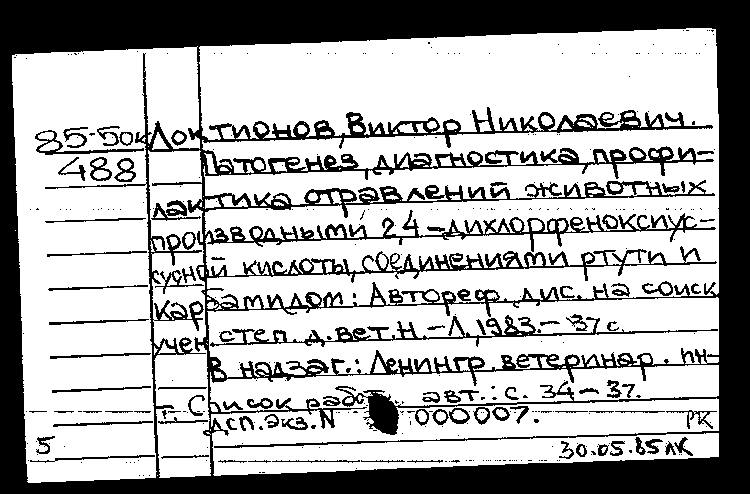 85-5ок Локтионов, Виктор Николаевич.
488 Патогенез, диагностика, профи-
лактика отравлений животных
производными 2,4-дихлорфеноксиус-
сусной кислоты, соединениями ртути и
карбамидом: Автореф. дис. на соиск
учен. степ. д. вет. н. - Л., 1983. - 37 с.
В надзаг.: Ленингр. ветеринар. ин-
т. Список работ авт.: с. 34-37.
ДСП. экз. N 000007.
РК
5
30.05.85 ЛК